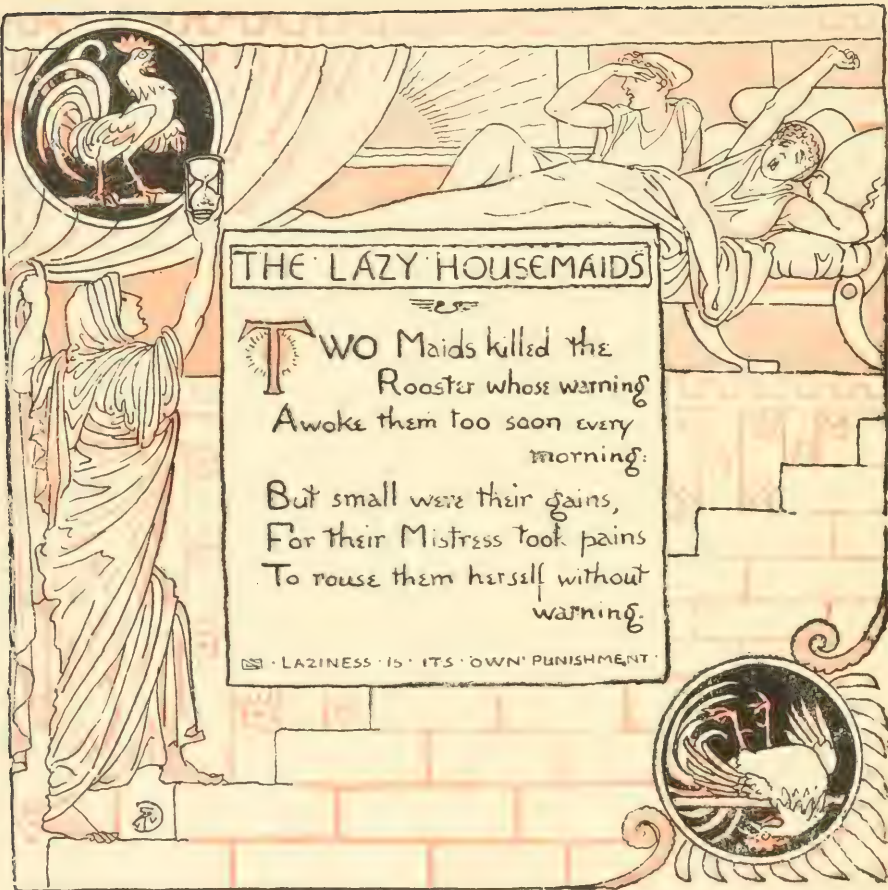 THE LAZY HOUSEMAIDS
TWO Maids killed the
Rooster whose warning
Awoke them too soon every
morning:
But small were their gains,
For their Mistress took pains
To rouse them herself without
warning.
· LAZINESS · IS · ITS · OWN · PUNISHMENT ·